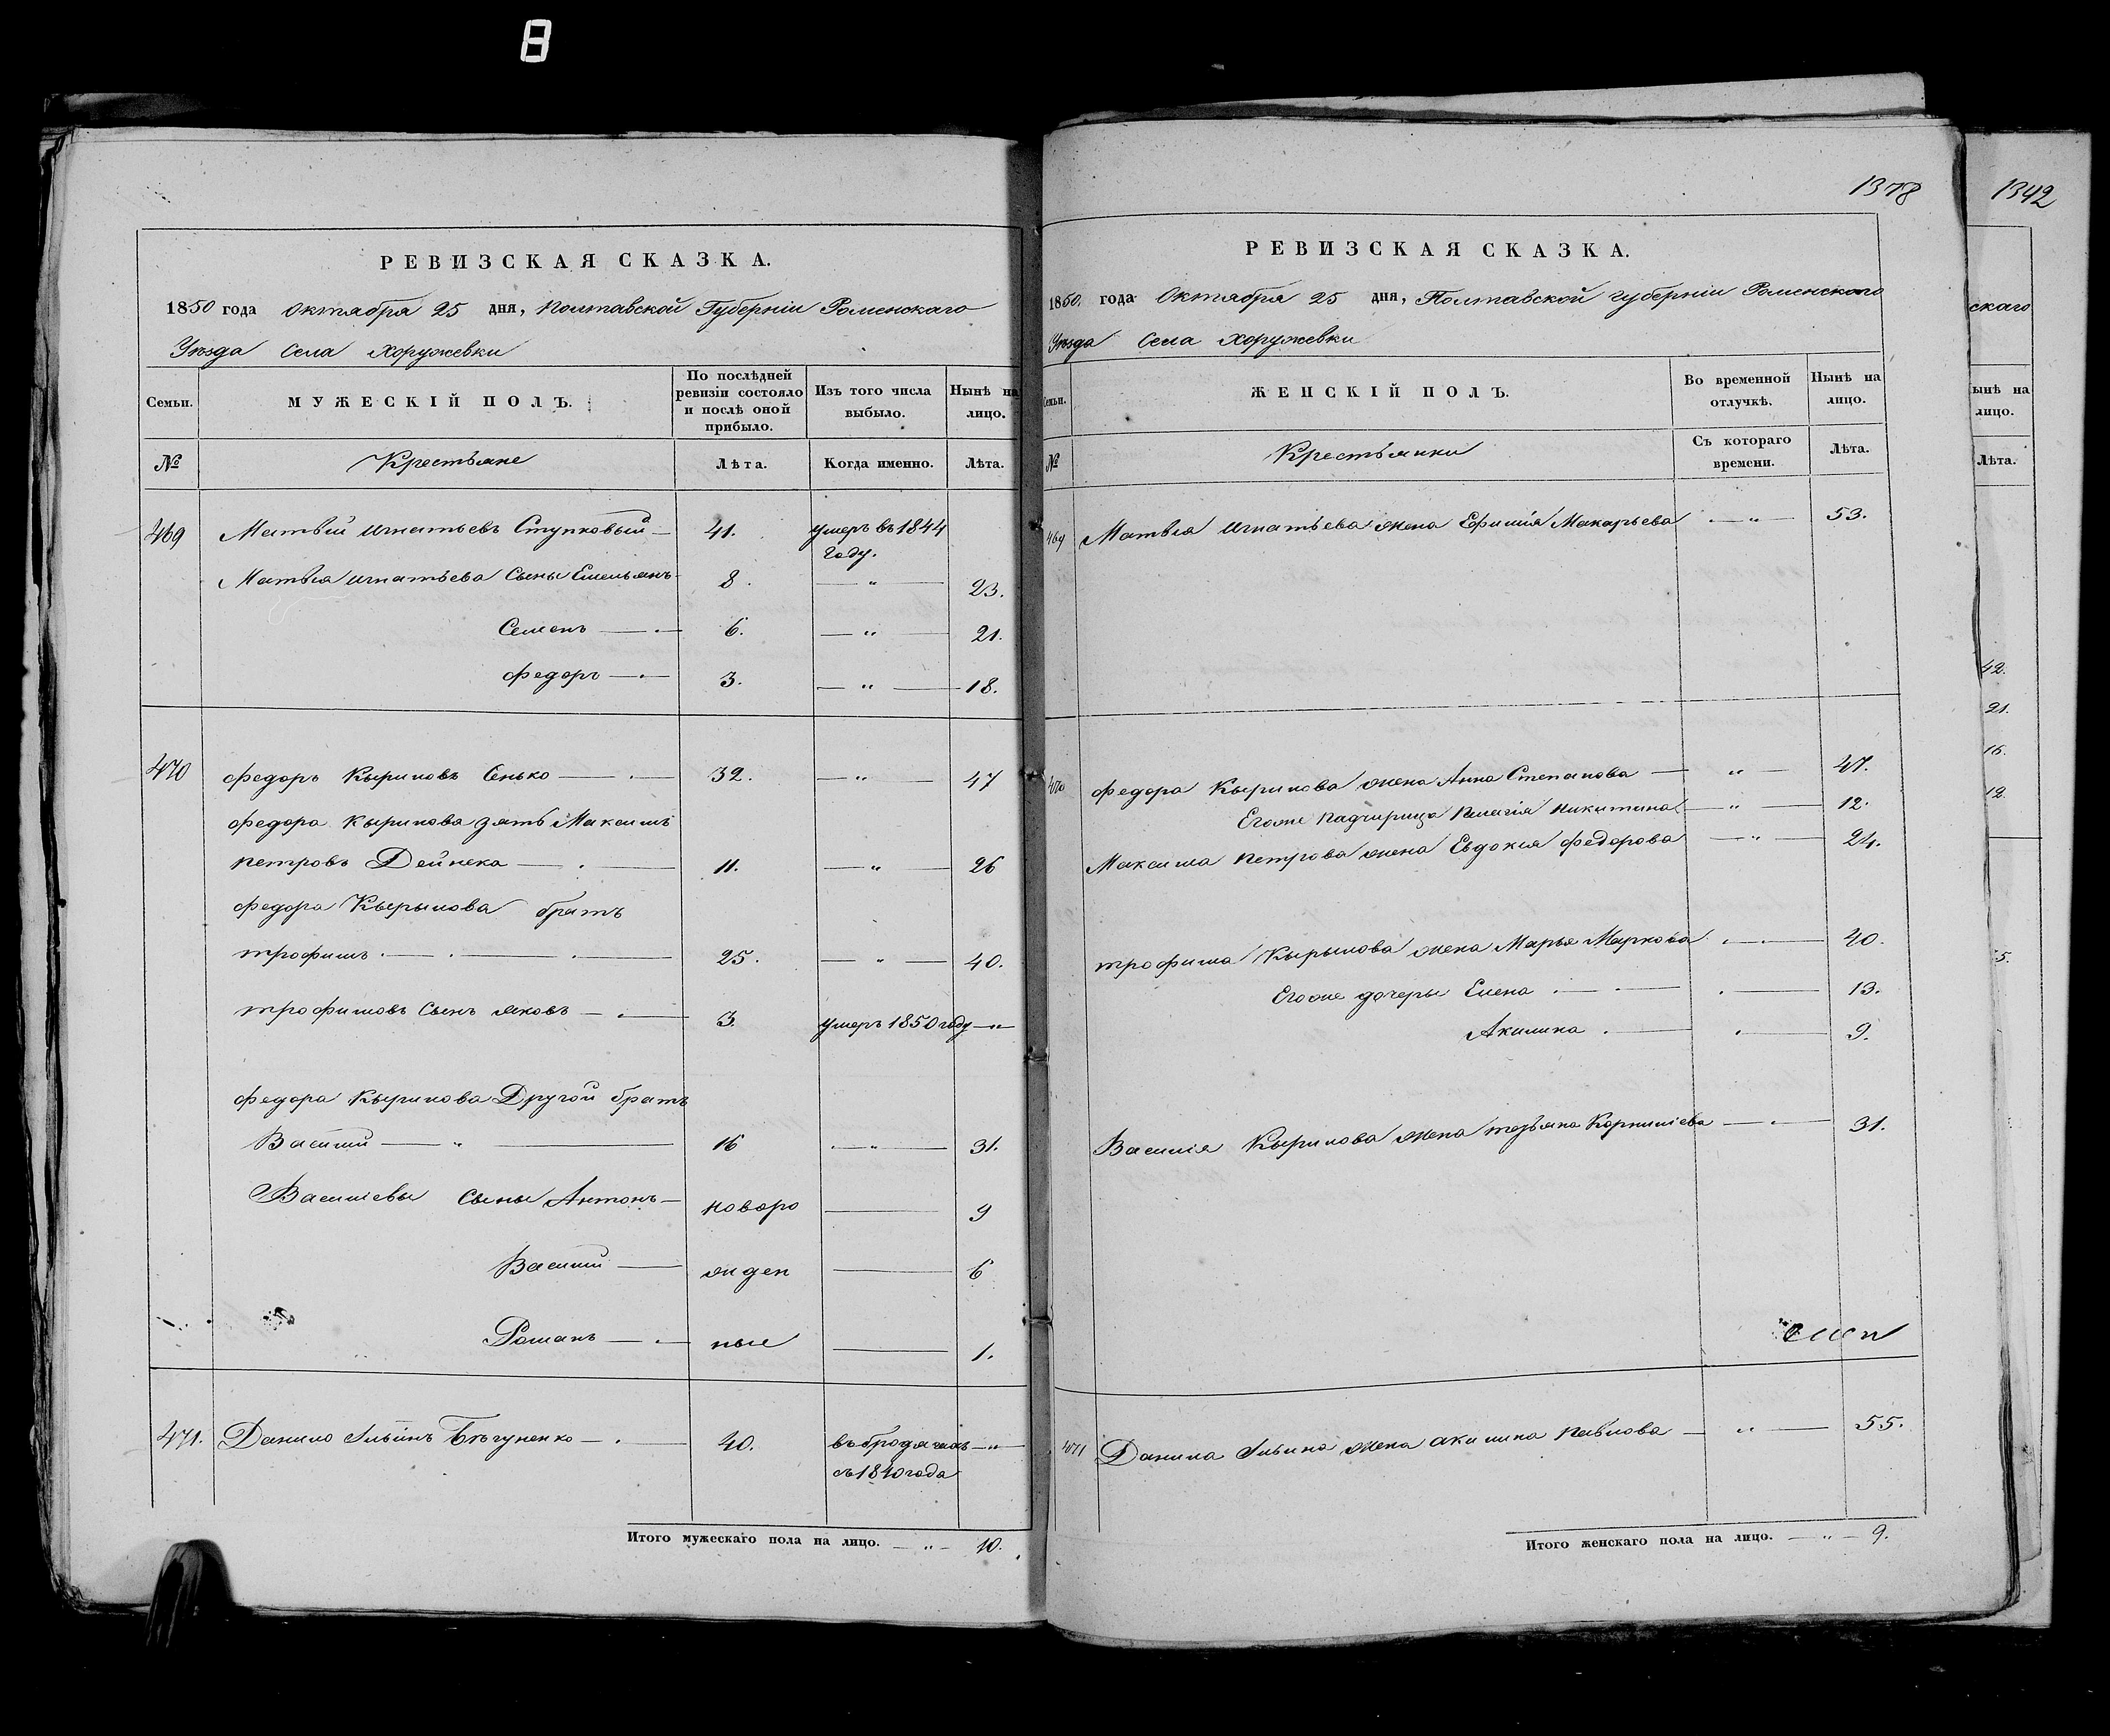 8
РЕВИЗСКАЯ СКАЗКА.
1850 года Октября 25 дня, Полтавской Губерніи Роменскаго
Уѣзда Села Хоружевки
Семьи.
МУЖЕСКІЙ ПОЛЪ.
По послѣдней ревизіи состояло и послѣ оной прибыло.
Изъ того числа выбыло.
Нынѣ на лицо.
№
Крестьяне
Лѣта.
Когда именно.
Лѣта.
469 Матвѣй Игнатьевъ Ступковый — 41. умеръ въ 1844
году.
Матвѣя Игнатьева Сыны Емельянъ 8. — „ — 23.
Семенъ — 6. — „ — 21.
Федоръ — 3. — „ — 18.
470 Федоръ Кириловъ Сенько — 32. — „ — 47
Федора Кирилова зять Максимъ
Петровъ Дейнека — 11. — „ — 26
Федора Кырылова братъ
Трофимъ — 25. — „ — 40.
Трофимовъ Сынъ Яковъ — 3. умеръ 1850 году — „ —
Федора Кырилова Другой братъ
Василій — „ — 16 — „ — 31.
Василіевы Сыны Антонъ — новоро — 9
Василій — жден — 6
Романъ — ные — 1.
471. Данило Ильинъ Бѣгуненко — 40. въ бродячихъ — „ —
съ 1840 года
Итого мужескаго пола на лицо. — „ — 10.
1378
РЕВИЗСКАЯ СКАЗКА.
1850 года Октября 25 дня, Полтавской Губерніи Роменскаго
Уѣзда Села Хоружевки
Семьи.
ЖЕНСКІЙ ПОЛЪ.
Во временной отлучкѣ.
Нынѣ на лицо.
№
Крестьянки
Съ котораго времени.
Лѣта.
469 Матвѣя Игнатьева жена Ефимія Макарьева — „ — 53.
470 Федора Кырилова жена Анна Степанова — „ — 47.
Егоже падчирица Пелагія Никитина — „ — 12.
Максима Петрова жена Евдокия Федорова — „ — 24.
Трофима Кырылова жена Марья Маркова — 40.
Егоже дочеры Елена — 13.
Акилина — 9.
Василія Кырилова жена Тетьяна Корнилієва — 31.
471 Данила Ильина жена Акилина Павлова — „ — 55.
Итого женскаго пола на лицо. — „ — 9.
1342
скаго
ынѣ на
лицо.
Лѣта.
42.
21.
16.
12.
5.